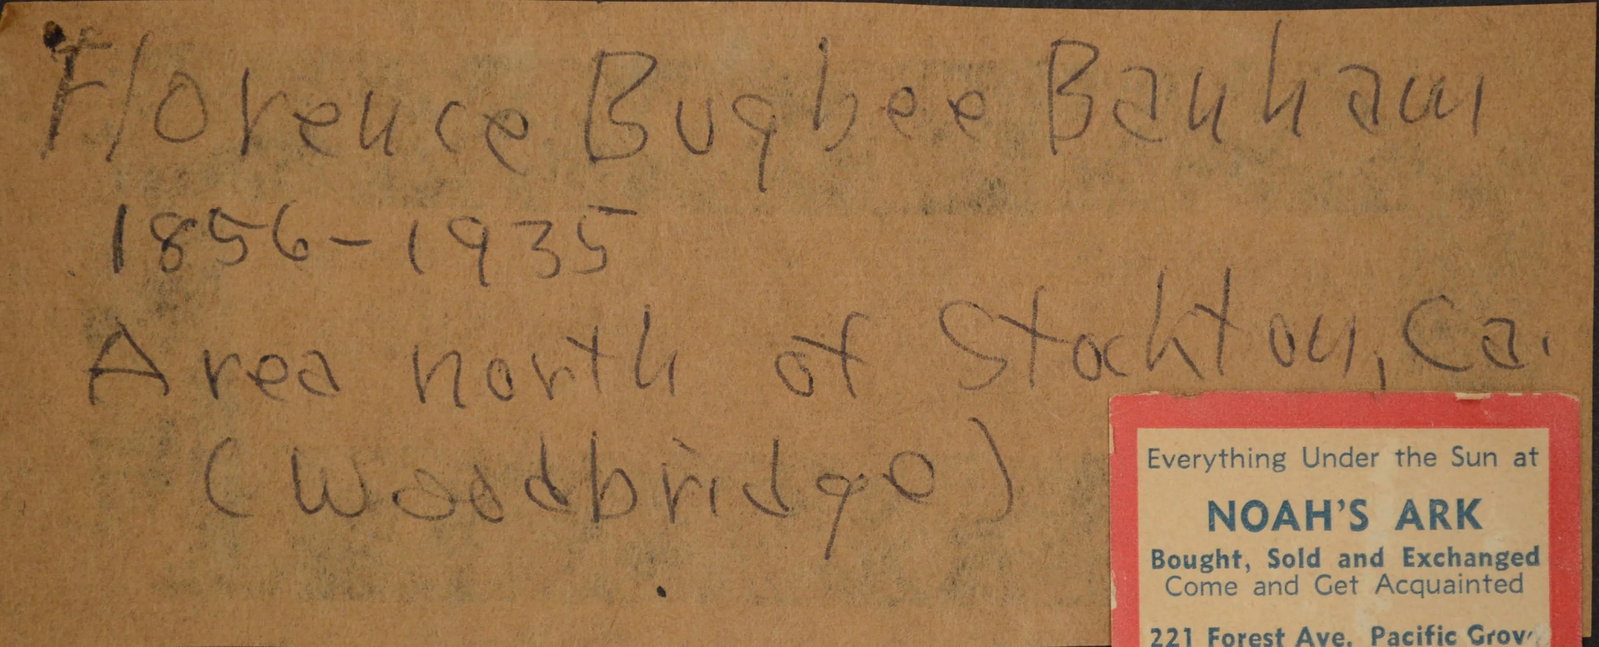 Florence Bugbee Banham
1856-1935
Area north of Stockton, Ca.
(Woodbridge)
Everything Under the Sun at
NOAH'S ARK
Bought, Sold and Exchanged
Come and Get Acquainted
221 Forest Ave. Pacific Grov